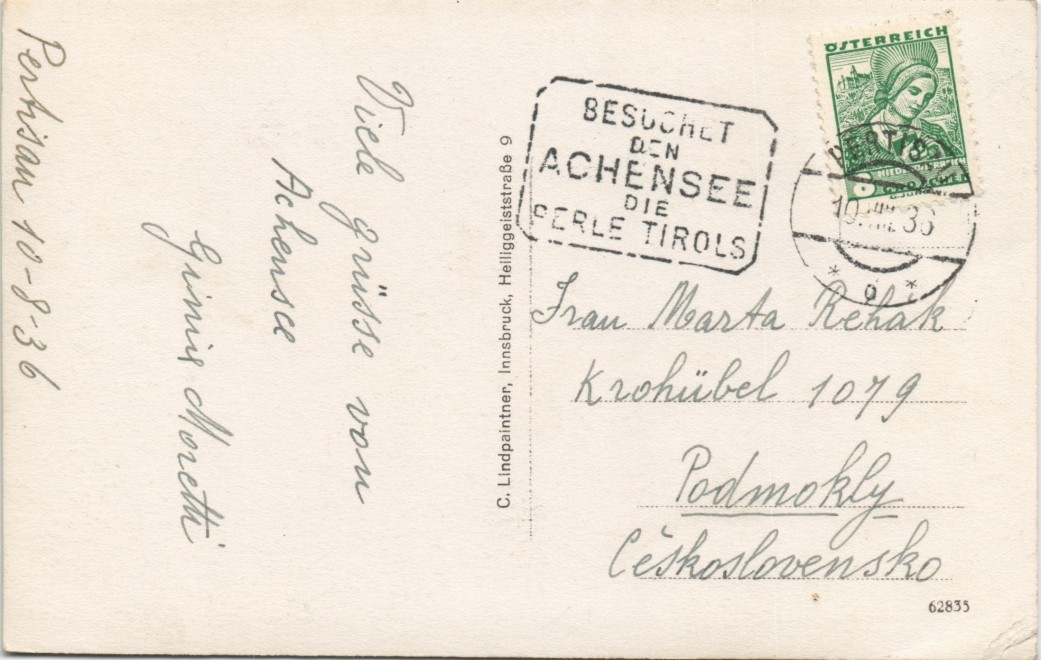 Pertisau 10-8-36
Viele grüsse von
Achensee
Moretti
C. Lindpaintner, Innsbruck, Heiliggeiststraße 9
BESUCHET
DEN
ACHENSEE
DIE
PERLE TIROLS
ÖSTERREICH
NIEDERÖSTERREICH
GROSCHEN
PERTIS
10.VIII.36
* a *
Frau Marta Rehak
Krohübel 1079
Podmokly
Československo
62835